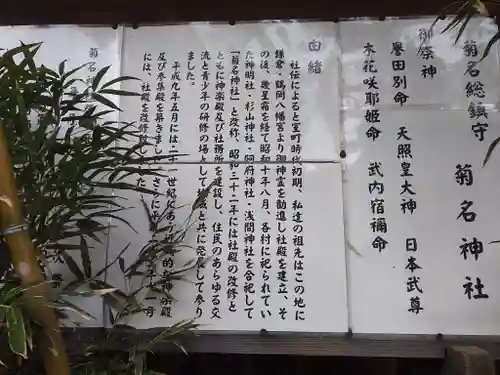 菊名総鎮守 菊名神社
御祭神
誉田別命 天照皇大神 日本武尊
木花咲耶姫命 武内宿禰命
由緒
社伝によると室町時代初期、私達の祖先はこの地に
鎌倉、鶴岡八幡宮より御神霊を勧進し社殿を建立、そ
の後、幾星霜を経て昭和十年八月、各村に祀られてい
た神明社・杉山神社・阿府神社・浅間神社を合祀して
「菊名神社」と改称、昭和三十二年には社殿の改修と
ともに神楽殿及び社務所を建設し、住民のあらゆる交
流と青少年の研修の場として地域と共に発展して参り
ました。
平成九年五月には二十一世紀にあう
神楽殿
及び参集殿を築きまし
十一月
には、社殿を改修
した
菊名神